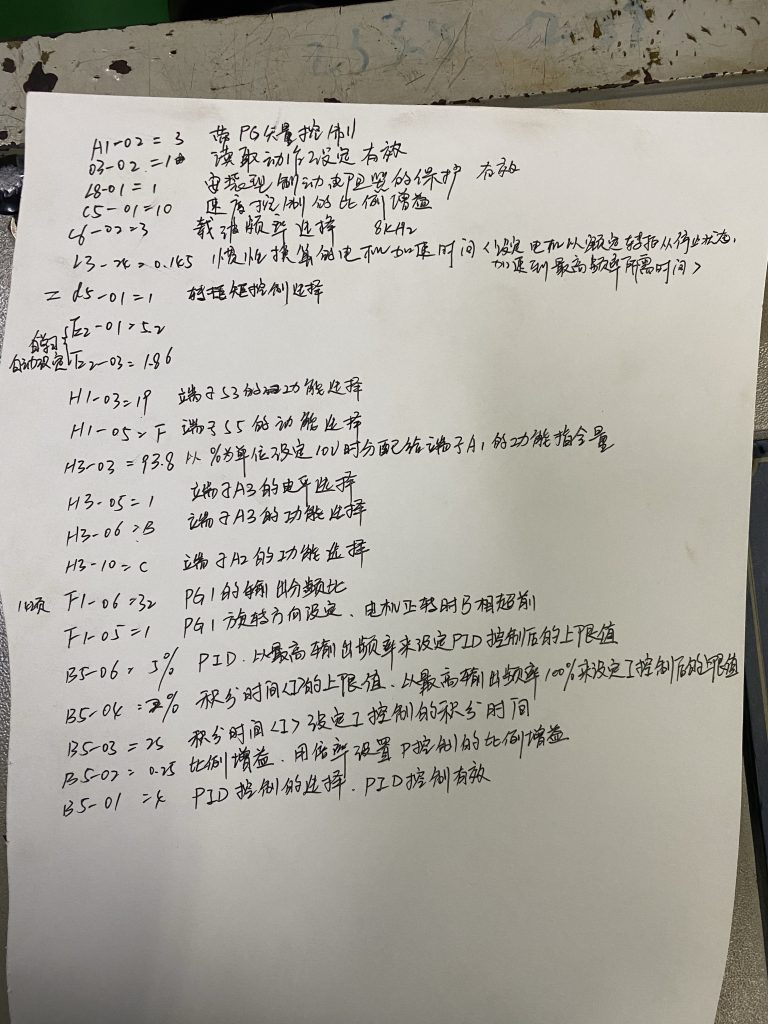 A1-02=3 带PG矢量控制
03-02=1 读取动作设定有效
L8-01=1 安装型制动电阻器的保护 有效
C5-01=10 速度控制的比例增益
C6-02=3 载波频率选择 8kHz
L3-24=0.145 惯性换算的电机加速时间<设定电机以额定转拒从停止状态,
加速到最高频率所需时间>
= d5-01=1 转拒矩控制选择
自学习 E2-01=5.2
自动设定 E2-03=1.86
H1-03=19 端子S3的功能选择
H1-05=F 端子S5的功能选择
H3-03=93.8 以%为单位设定10V时分配给端子A1的功能指令量
H3-05=1 端子A3的电平选择
H3-06=B 端子A3的功能选择
H3-10=C 端子A2的功能选择
F1-06=32 PG1的输出分频比
F1-05=1 PG1旋转方向设定、电机正转时B相超前
B5-06=5% PID.以最高输出频率来设定PID控制后的上限值
B5-04=% 积分时间<I>的上限值.以最高输出频率100%来设定I控制后的上限值
B5-03=25 积分时间<I>设定I控制的积分时间
B5-02=0.25 比例增益.用倍率设置P控制的比例增益
B5-01=4 PID控制的选择.PID控制有效